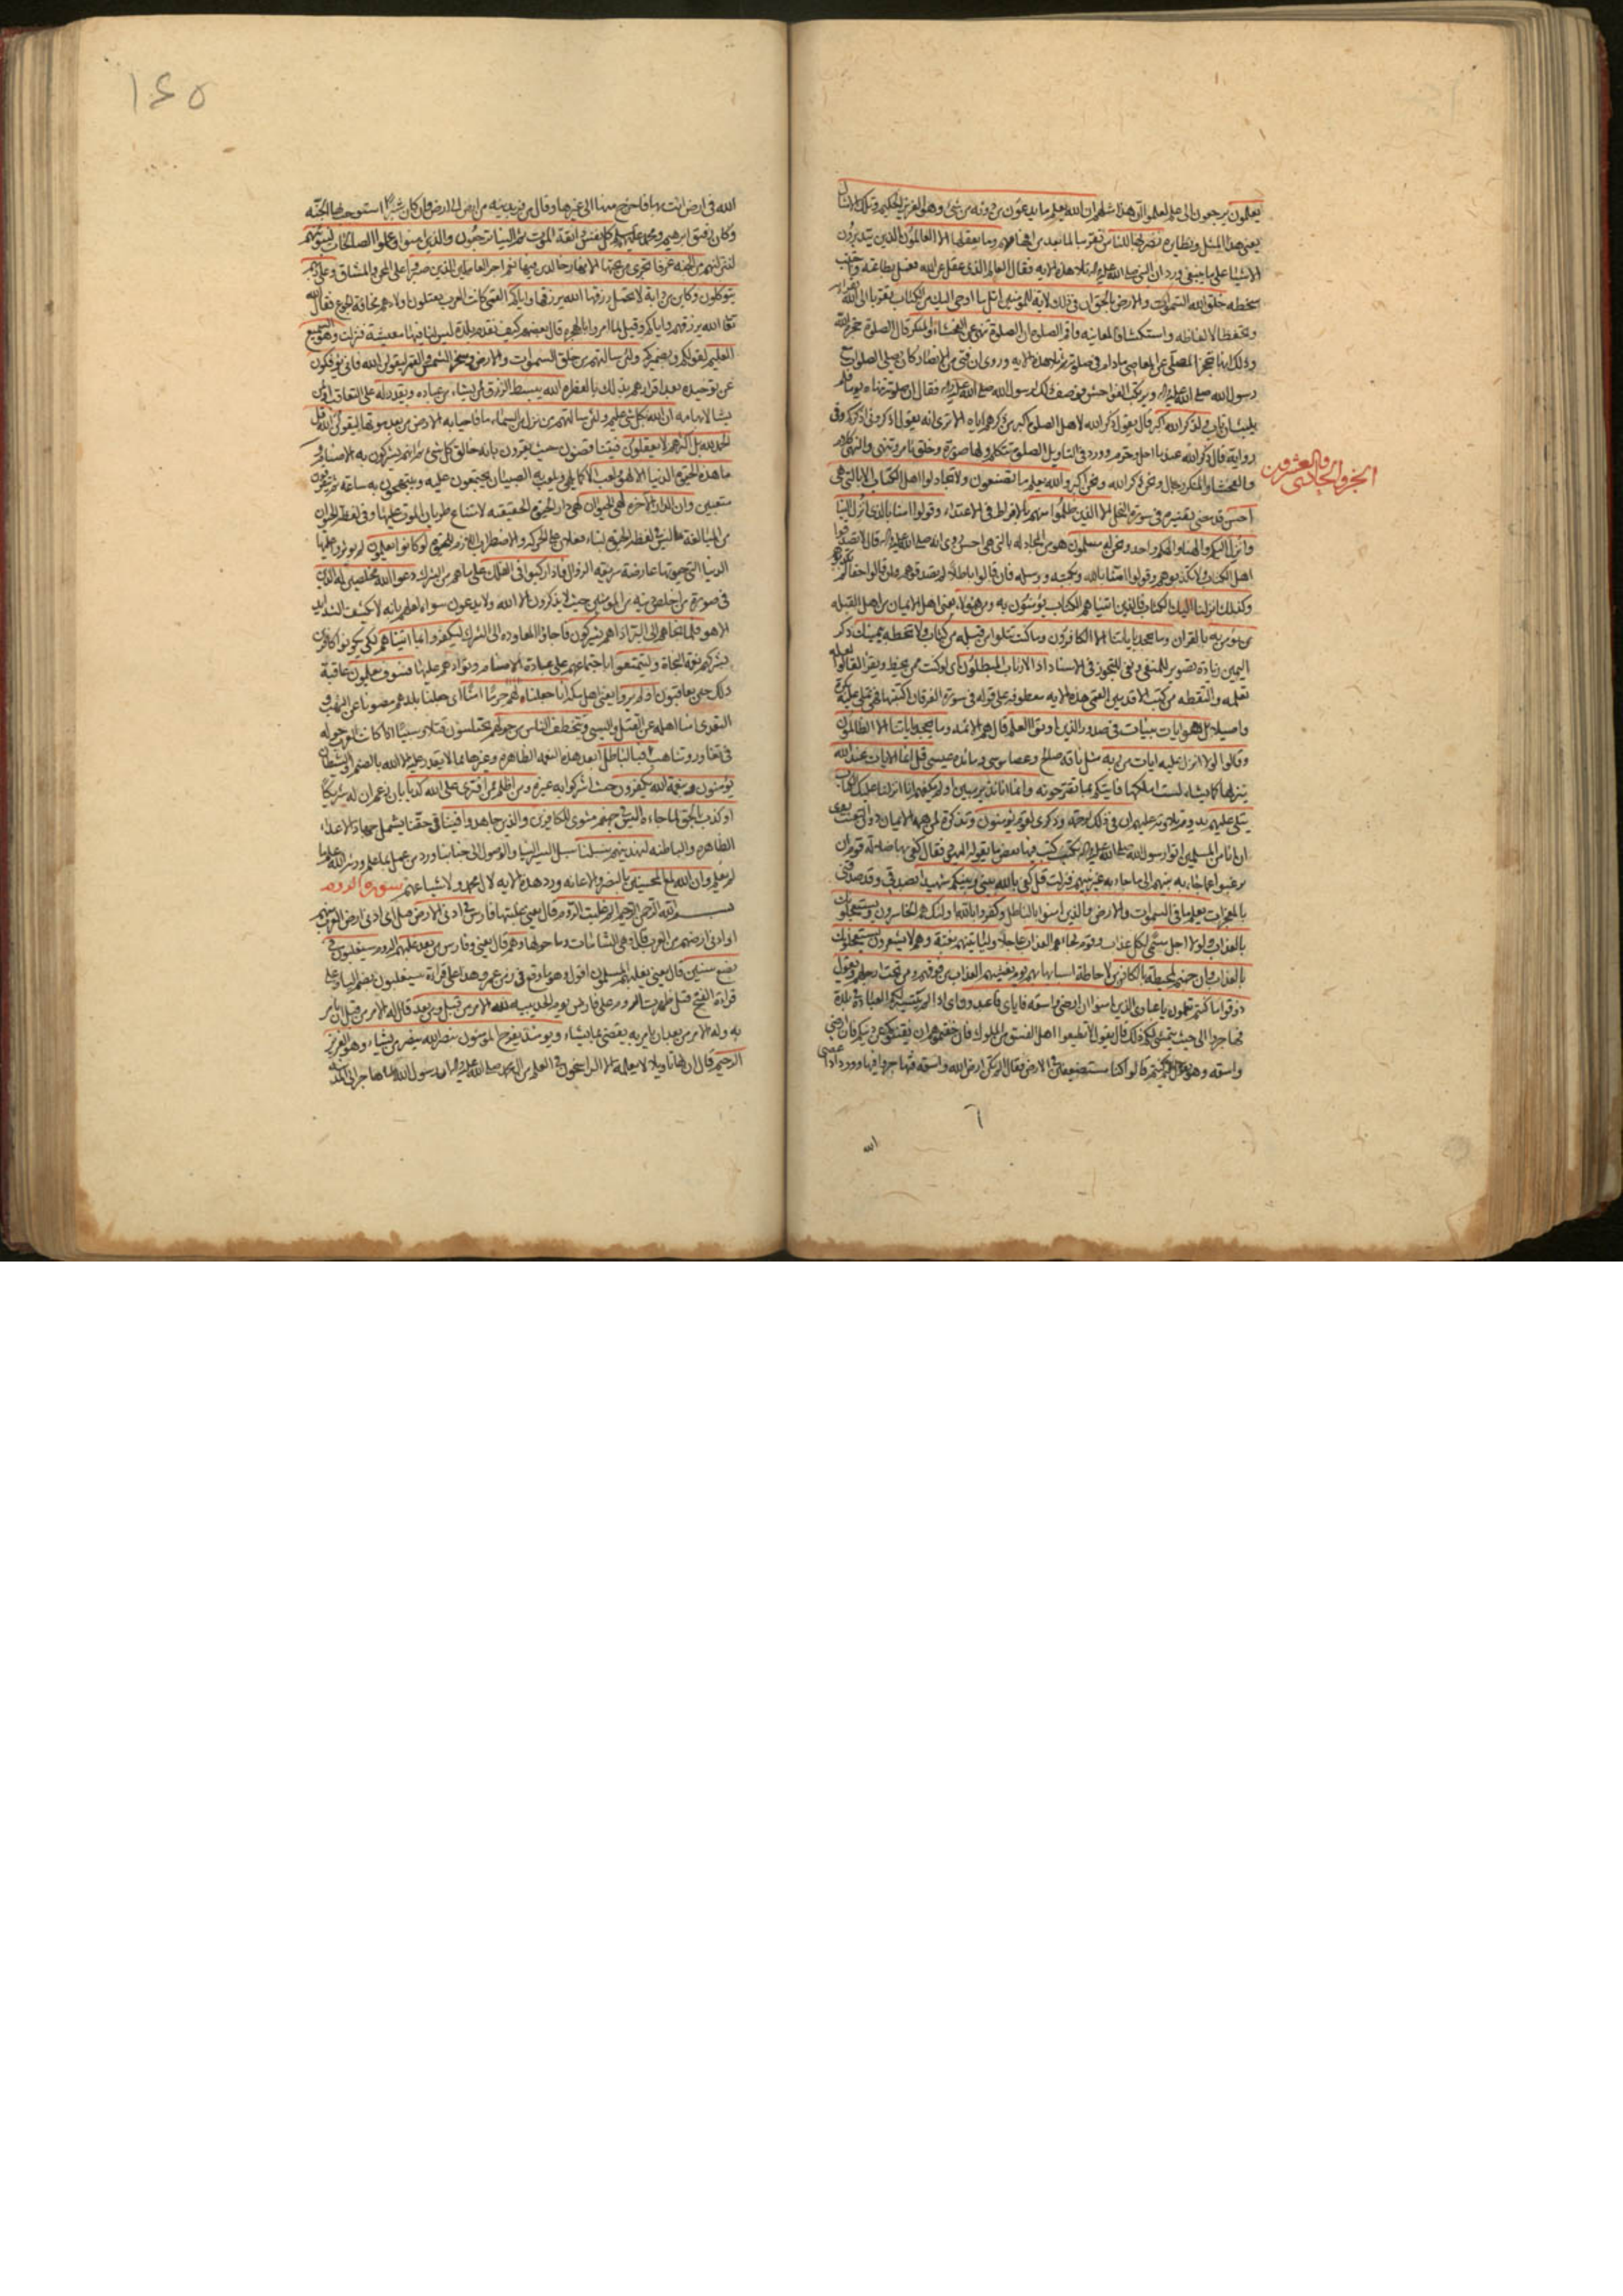 يعلمون يرجعون الى علم لعلموا ان هذا مثلهم ان الله يعلم ما يدعون من دونه من شيء وهو العزيز الحكيم وتلك الامثال
يعنى هذا المثل ونظايره نضربها للناس تقريبا لما بعد من افهامهم وما يعقلها الا العالمون الذين يتدبرون
الاشياء على ما ينبغى ورد ان النبى صلى الله عليه واله تلا هذه الاية فقال العالم الذى عقل عن الله فعمل بطاعته واجتنب
سخطه خلق الله السموات والارض بالحق ان فى ذلك لاية للمؤمنين اتل ما اوحى اليك من الكتاب تقربا الى الله بقراءته
وتحفظا لالفاظه واستكشافا لمعانيه واقم الصلوة ان الصلوة تنهى عن الفحشاء والمنكر قال الصلوة حجزة الله
وذلك انها تحجز المصلى عن المعاصى مادام فى صلوته ثم تلا هذه الاية وروى ان فتى من الانصار كان يصلى الصلوات مع
رسول الله صلى الله عليه واله ويرتكب الفواحش فوصف ذلك لرسول الله صلى الله عليه واله فقال ان صلوته تنهاه يوما فلم
يلبث ان تاب ولذكر الله اكبر قال يقول ذكر الله لاهل الصلوة اكبر من ذكرهم اياه الا ترى انه يقول اذكرونى اذكركم وفى
رواية قال ذكر الله عند ما احل وحرم وورد فى التاويل الصلوة تتكلم ولها صورة وخلق تامر وتنهى والنهى كلام
والفحشاء والمنكر رجال ونحن ذكر الله ونحن اكبر والله يعلم ما تصنعون ولا تجادلوا اهل الكتاب الا بالتى هى
الجزو الحادى والعشرون
احسن قد مضى تفسيره فى سورة النحل الا الذين ظلموا منهم بالافراط فى الاعتداء وقولوا امنا بالذى انزل الينا
وانزل اليكم والهنا والهكم واحد ونحن له مسلمون هو من المجادلة بالتى هى احسن روى انه صلى الله عليه واله قال لا تصدقوا
اهل الكتاب ولا تكذبوهم وقولوا امنا بالله وبكتبه ورسله فان قالوا باطلا لم تصدقوهم وان قالوا حقا لم تكذبوهم
وكذلك انزلنا اليك الكتاب فالذين اتيناهم الكتاب يؤمنون به ومن هؤلاء يعنى اهل الايمان من اهل القبلة
من يؤمن به بالقران وما يجحد باياتنا الا الكافرون وما كنت تتلوا من قبله من كتاب ولا تخطه بيمينك ذكر
اليمين زيادة تصوير للمنفى ونفى للتجوز فى الاسناد اذا لارتاب المبطلون اى لو كنت ممن يخط ويقرا لقالوا لعله
تعلمه والتقطه من كتب الاقدمين القمى هذه الاية معطوفة على قوله فى سورة الفرقان اكتتبها فهى تملى عليه بكرة
واصيلا بل هو ايات بينات فى صدور الذين اوتوا العلم قال هم الائمة وما يجحد باياتنا الا الظالمون
وقالوا لولا انزل عليه ايات من ربه مثل ناقة صالح وعصا موسى ومائدة عيسى قل انما الايات عند الله
ينزلها كما يشاء لست املكها فاتيكم بما تقترحونه وانما انا نذير مبين اولم يكفهم انا انزلنا عليك الكتاب
يتلى عليهم تدوم تلاوته عليهم ان فى ذلك لرحمة وذكرى لقوم يؤمنون وتذكرة لمن همه الايمان دون التعنت روى
ان اناسا من المسلمين اتوا رسول الله صلى الله عليه واله بكتف كتب فيها بعض ما يقوله اليهود فقال كفى بها ضلالة قوم ان
يرغبوا عما جاء به نبيهم الى ما جاء به غير نبيهم فنزلت قل كفى بالله بينى وبينكم شهيدا بصدقى وقد صدقنى
بالمعجزات يعلم ما فى السموات والارض والذين امنوا بالباطل وكفروا بالله اولئك هم الخاسرون ويستعجلونك
بالعذاب ولولا اجل مسمى لكل عذاب وقوم لجاءهم العذاب عاجلا ولياتينهم بغتة وهم لا يشعرون يستعجلونك
بالعذاب وان جهنم لمحيطة بالكافرين لاحاطة اسبابها بهم يوم يغشيهم العذاب من فوقهم ومن تحت ارجلهم ويقول
ذوقوا ما كنتم تعملون يا عبادى الذين امنوا ان ارضى واسعة فاياى فاعبدون اى اذا لم يتيسر لكم العبادة فى بلدة
فهاجروا الى حيث يتمشى لكم ذلك قال يقول لا تطيعوا اهل الفسق من الملوك فان خفتموهم ان يفتنوكم عن دينكم فان ارضى
واسعة وهو يقول فيم كنتم قالوا كنا مستضعفين فى الارض فقال الم تكن ارض الله واسعة فتهاجروا فيها وورد اذا عصى
الله
١٤٥
الله فى ارض انت بها فاخرج منها الى غيرها وقال من فر بدينه من ارض الى ارض وان كان شبرا استوجب بها الجنة
وكان رفيق ابرهيم ومحمد عليهما السلم كل نفس ذائقة الموت ثم الينا ترجعون والذين امنوا وعملوا الصالحات لنبوئنهم
لننزلنهم من الجنة غرفا تجرى من تحتها الانهار خالدين فيها نعم اجر العاملين الذين صبروا على المحن والمشاق وعلى ربهم
يتوكلون وكاين من دابة لا تحمل رزقها الله يرزقها واياكم القمى كانت العرب يقتلون اولادهم مخافة الجوع فقال الله
تعالى الله يرزقهم واياكم وقيل لما امروا بالهجرة قال بعضهم كيف نقدم بلدة ليس لنا فيها معيشة فنزلت وهو السميع
العليم لقولكم وبضميركم ولئن سالتهم من خلق السموات والارض وسخر الشمس والقمر ليقولن الله فانى يؤفكون
عن توحيده بعد اقرارهم بذلك بالفطرة الله يبسط الرزق لمن يشاء من عباده ويقدر له على التعاقب او لمن
يشا لابهامه ان الله بكل شيء عليم ولئن سالتهم من نزل من السماء ماء فاحيا به الارض من بعد موتها ليقولن الله قل
الحمد لله بل اكثرهم لا يعقلون فيتناقضون حيث يقرون بانه خالق كل شيء ثم انهم يشركون به الاصنام و
ما هذه الحيوة الدنيا الا لهو ولعب الا كما يلهى ويلعب به الصبيان يجتمعون عليه ويبتهجون به ساعة ثم يتفرقون
متعبين وان الدار الاخرة لهى الحيوان لهى دار الحيوة الحقيقية لامتناع طريان الموت عليها وفى لفظ الحيوان
من المبالغة ما ليس فى لفظ الحيوة لبناء فعلان على الحركة والاضطراب اللازم للحيوة لو كانوا يعلمون لم يؤثروا عليها
الدنيا التى حيوتها عارضة سريعة الزوال فاذا ركبوا فى الفلك على ما هم من الشرك دعوا الله مخلصين له الدين
فى صورة من اخلص دينه من المؤمنين حيث لا يذكرون الا الله ولا يدعون سواه لعلمهم بانه لا يكشف الشدايد
الا هو فلما نجاهم الى البر اذا هم يشركون فاجاؤا المعاودة الى الشرك ليكفروا بما اتيناهم لكى يكونوا كافرين
بشركهم نعمة النجاة وليتمتعوا باجتماعهم على عبادة الاصنام وتوادهم عليها فسوف يعلمون عاقبة
ذلك حين يعاقبون اولم يروا يعنى اهل مكة انا جعلنا لهم حرما امنا اى جعلنا بلدهم مصونا عن النهب و
التعدى امنا اهله عن القتل والسبى ويتخطف الناس من حولهم يختلسون قتلا وسبيا اذ كانت العرب حوله
فى تغاور وتناهب افبالباطل ابعد هذه النعمة الظاهرة وغيرها مما لا يقدر عليه الا الله بالصنم او الشيطان
يؤمنون وبنعمة الله يكفرون حيث اشركوا به غيره ومن اظلم ممن افترى على الله كذبا بان زعم ان له شريكا
او كذب بالحق لما جاءه اليس فى جهنم مثوى للكافرين والذين جاهدوا فينا فى حقنا يشمل جهاد الاعداء
الظاهرة والباطنة لنهدينهم سبلنا سبل السير الينا والوصول الى جنابنا ورد من عمل بما علم ورثه الله علم ما
لم يعلم وان الله لمع المحسنين بالنصر والاعانة ورد هذه الاية لال محمد ولاشياعهم سورة الروم
بسم الله الرحمن الرحيم الم غلبت الروم قال يعنى غلبتها فارس فى ادنى الارض قيل اى ادنى ارض العرب منهم
او ادنى ارضهم من العرب قال هى الشامات وما حولها وهم قال يعنى وفارس من بعد غلبهم الروم سيغلبون فى
بضع سنين قال يعنى يغلبهم المسلمون اقول وهو ما وقع فى زمن عمر وهذا على قراءة سيغلبون بضم الياء وعلى
قراءة الفتح قيل ظهرت الروم على فارس يوم الحديبية لله الامر من قبل ومن بعد قال له الامر من قبل ان يامر
به وله الامر من بعد ان يامر به يقضى بما يشاء ويومئذ يفرح المؤمنون بنصر الله ينصر من يشاء وهو العزيز
الرحيم قال ان لها تاويلا لا يعلمه الا الراسخون فى العلم من ال محمد صلى الله عليه واله ان رسول الله لما هاجر الى المدينة